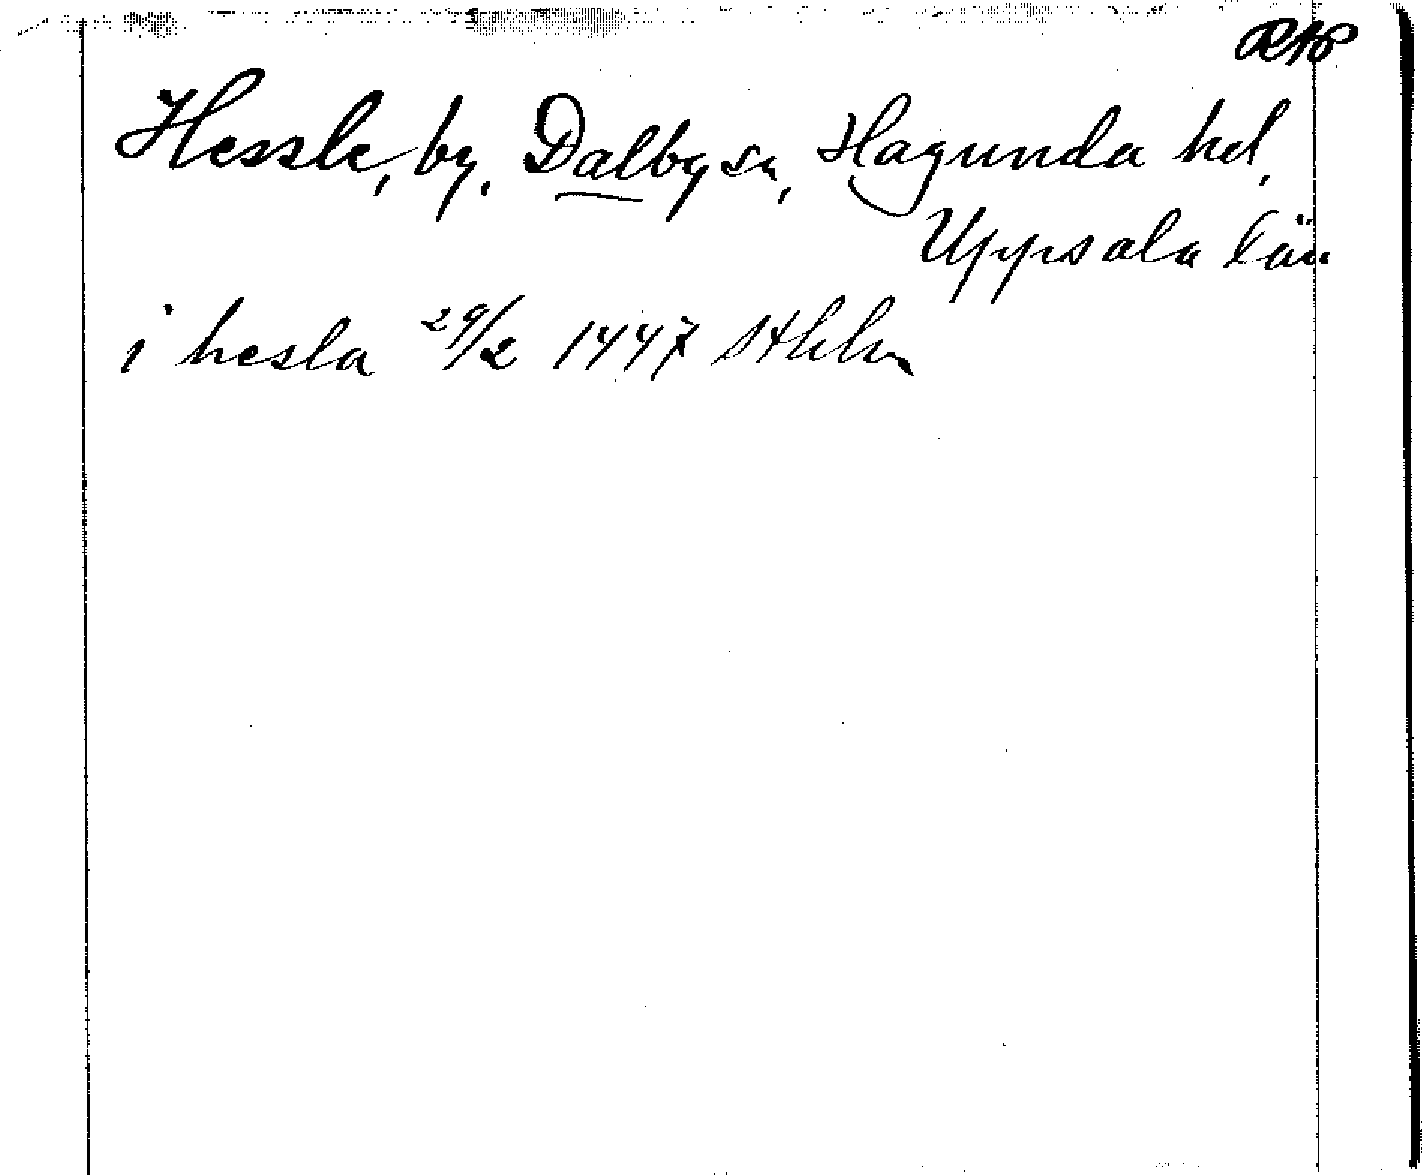 RAP
Hessle, by, Dalby sn, Hagunda hd,
Uppsala län
i hesla 29/2 1447 Sthlm